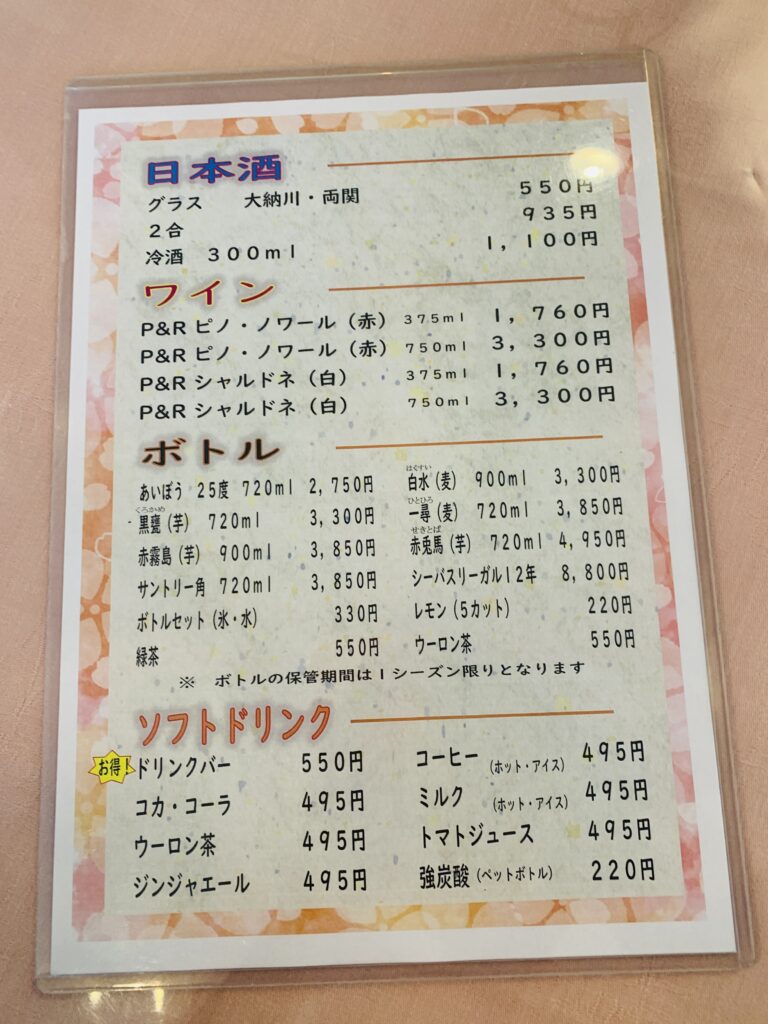 日本酒
グラス 大納川・両関 550円
2合 935円
冷酒 300ml 1,100円
ワイン
P&R ピノ・ノワール(赤) 375ml 1,760円
P&R ピノ・ノワール(赤) 750ml 3,300円
P&R シャルドネ(白) 375ml 1,760円
P&R シャルドネ(白) 750ml 3,300円
ボトル
あいぼう 25度 720ml 2,750円
くろかめ
黒甕(芋) 720ml 3,300円
赤霧島(芋) 900ml 3,850円
サントリー角 720ml 3,850円
ボトルセット(氷・水) 330円
緑茶 550円
はくすい
白水(麦) 900ml 3,300円
ひとひろ
一尋(麦) 720ml 3,850円
せきとば
赤兎馬(芋) 720ml 4,950円
シーバスリーガル12年 8,800円
レモン(5カット) 220円
ウーロン茶 550円
※ ボトルの保管期間は1シーズン限りとなります
ソフトドリンク
お得!ドリンクバー 550円
コカ・コーラ 495円
ウーロン茶 495円
ジンジャエール 495円
コーヒー (ホット・アイス) 495円
ミルク (ホット・アイス) 495円
トマトジュース 495円
強炭酸(ペットボトル) 220円